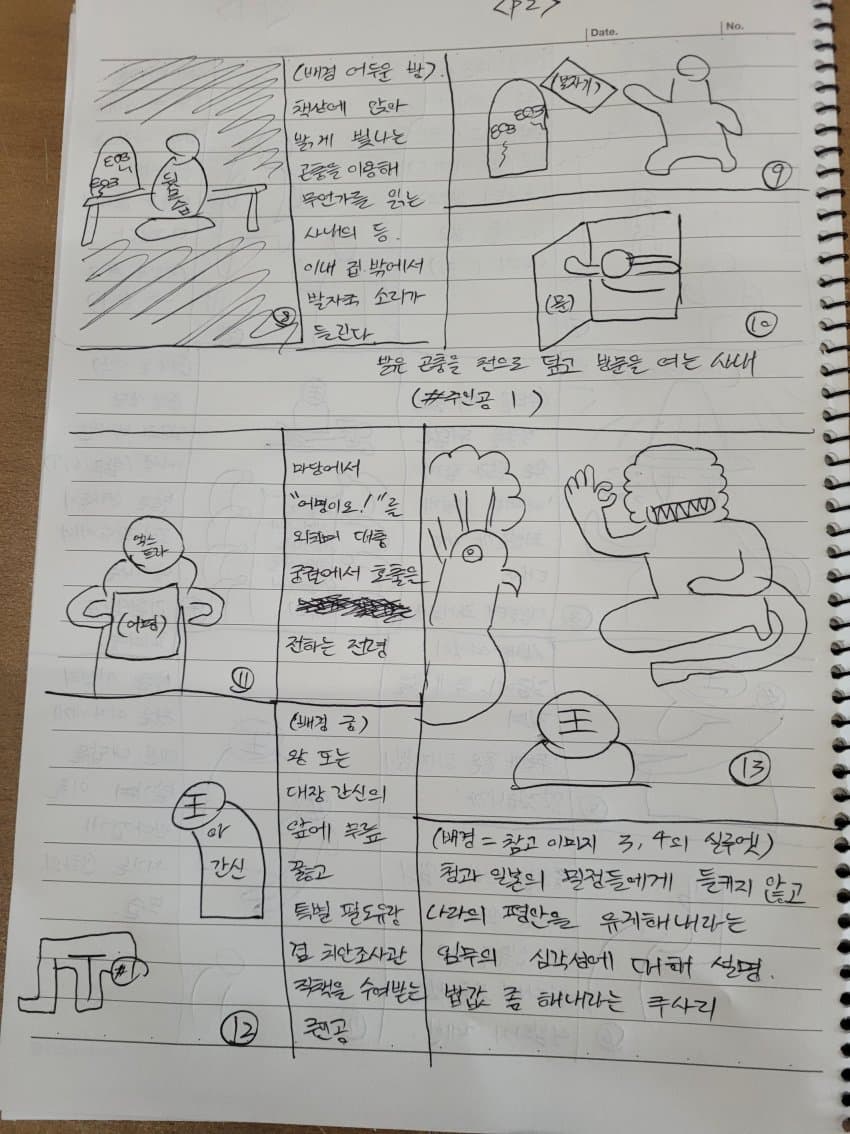 <P2>
Date.
No.
(배경 어두운 밤).
책상에 앉아
밝게 빛나는
곤충을 이용해
무언가를 읽는
사내의 등.
이내 집 밖에서
발자국 소리가
들린다.
뒷모습
8
(보자기)
9
(문)
10
밝은 곤충을 천으로 덮고 방문을 여는 사내
(#주인공 1)
엑스
트라
(어명)
11
마당에서
"어명이오!"를
외치며 대충
궁궐에서 호출을
전하는 전령
王
or
간신
#1
12
(배경 궁)
왕 또는
대장 간신의
앞에 무릎
꿇고
특별 팔도유랑
겸 치안조사관
직책을 수여받는
주인공
王
13
(배경 = 참고 이미지 3, 4의 실루엣)
청과 일본의 밀정들에게 들키지 않고
나라의 평안을 유지해내라는
임무의 심각성에 대해 설명.
밥값 좀 해내라는 쿠사리